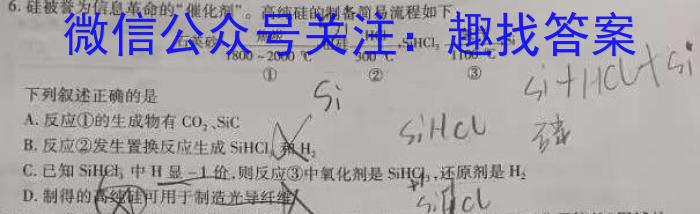 6. 硅被誉为信息革命的“催化剂”。高纯硅的制备简易流程如下:
微信公众号关注：趣找答案
1800~2000 ℃ 300 ℃ SiHCl₃ 1100 ℃
① ② ③
下列叙述正确的是
Si
Si+HCl+Si
A. 反应①的生成物有 CO₂、SiC
SiHCl
B. 反应②发生置换反应生成 SiHCl₃ 和 H₂
C. 已知 SiHCl₃ 中 H 显 -1 价,则反应③中氧化剂是 SiHCl₃,还原剂是 H₂
D. 制得的高纯硅可用于制造光导纤维
SiHCl